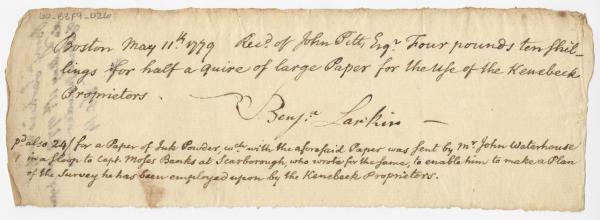 60-B3F9-026
Boston May 11th. 1779 Recd. of John Pitt, Esqr. Four pounds ten shil-
lings for half a Quire of large Paper for the Use of the Kenebeck
Proprietors.
Benjn. Larkin
pd. also 24/ for a Paper of Ink Powder, wch. with the aforesaid Paper was sent by Mr. John Waterhouse
in a sloop to Capt. Moses Banks at Scarborough, who wrote for the same, to enable him to make a Plan
of the Survey he has been employed upon by the Kenebeck Proprietors.